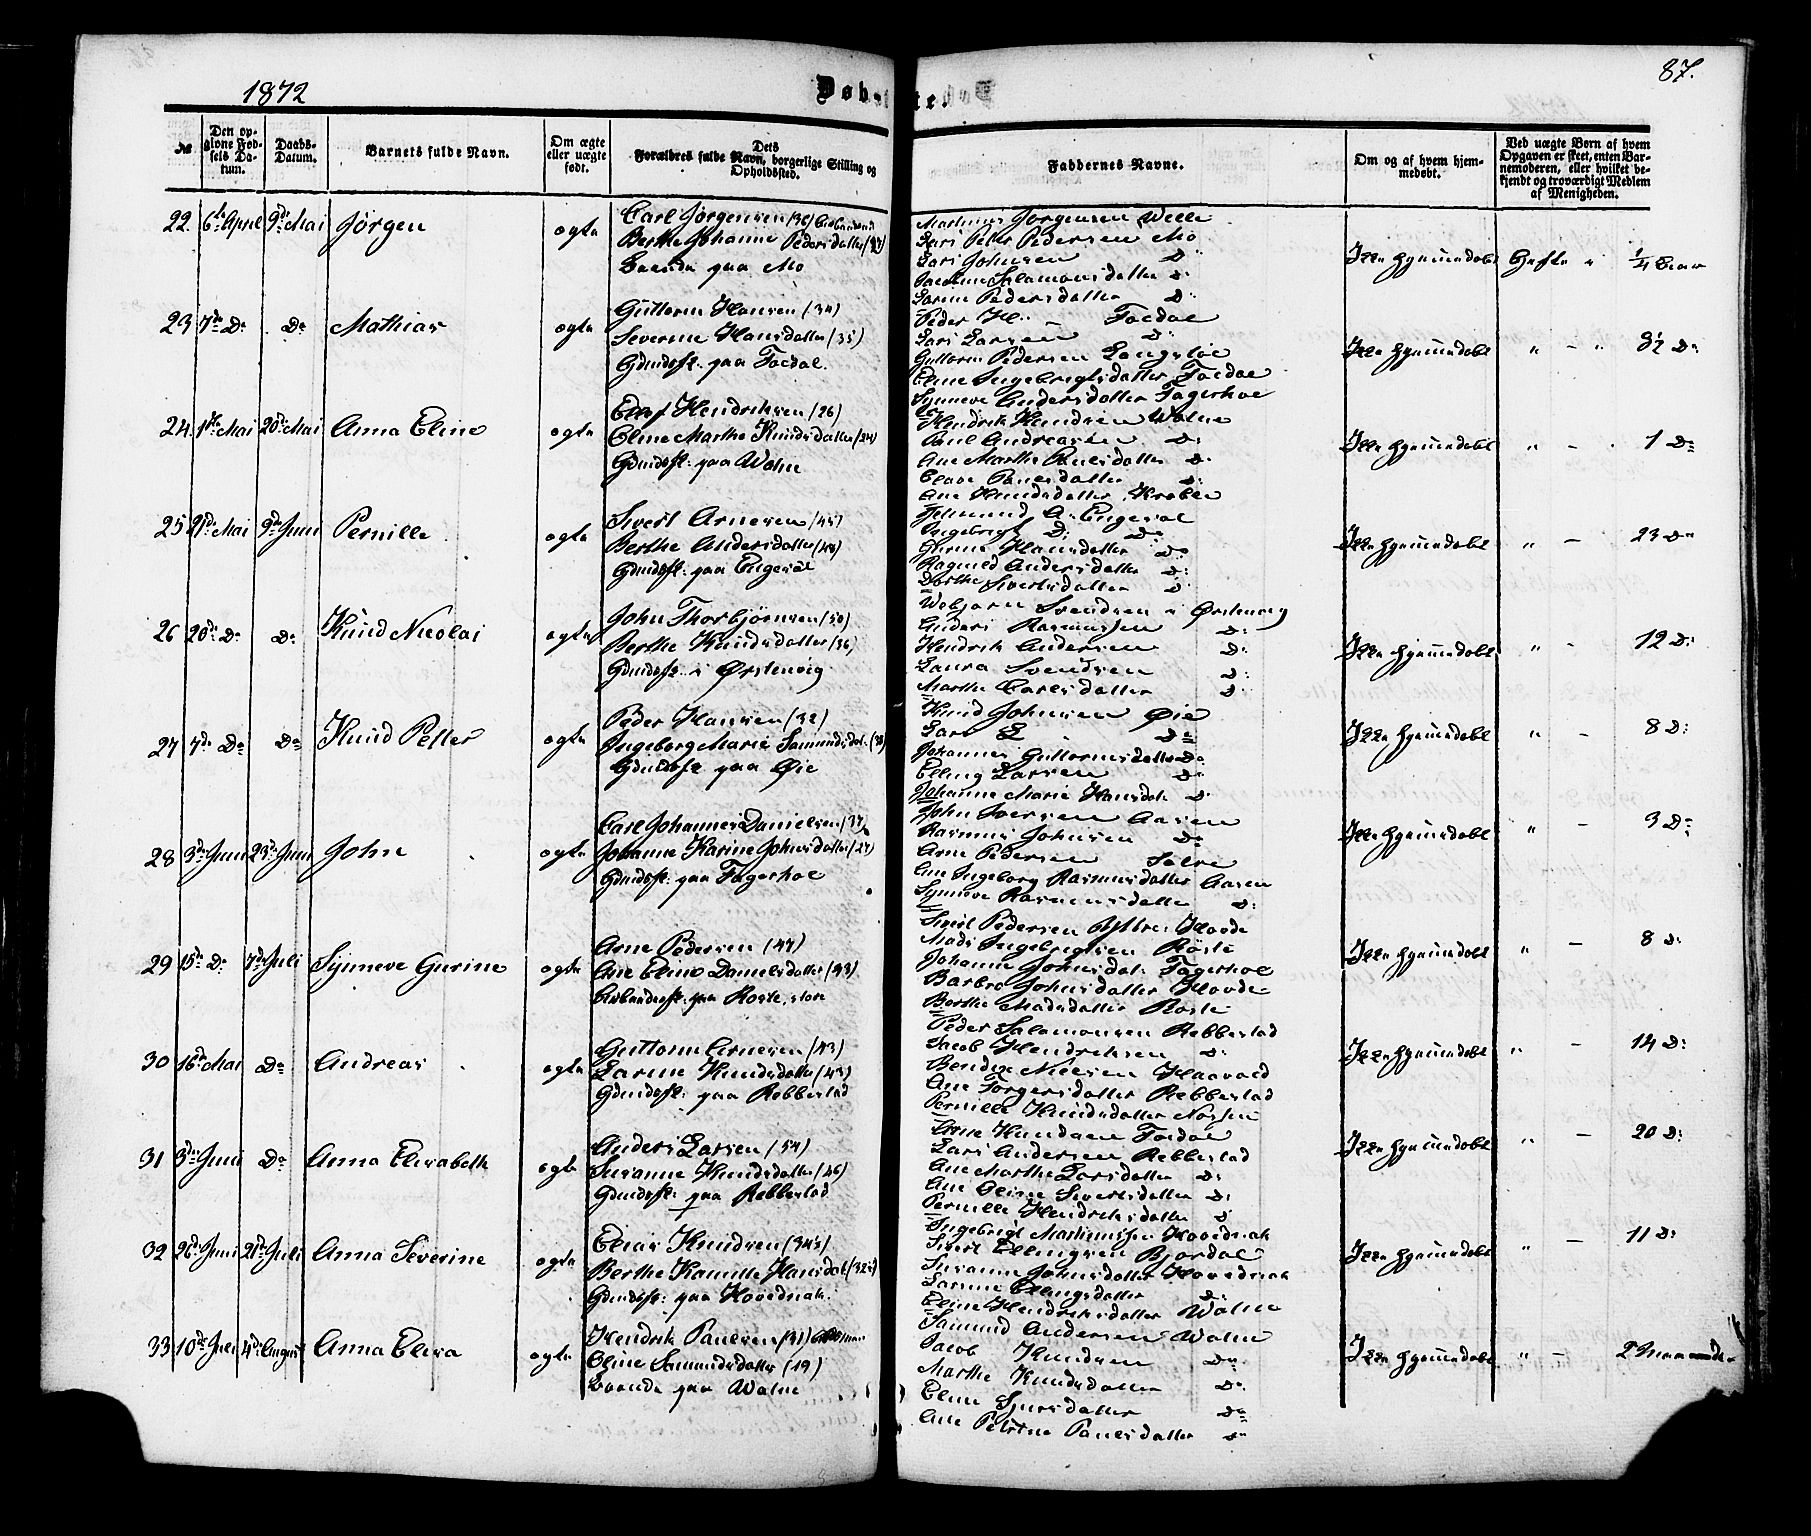 1872
Døbte.
87.
No
Den opgivne Fødsels Datum.
Daabs-Datum.
Barnets fulde Navn.
Om ægte eller uægte født.
Dets Forældres fulde Navn, borgerlige Stilling og Opholdssted.
Faddernes Navne.
Om og af hvem hjemmedøbt.
Ved uægte Børn af hvem Opgaven er skeet, enten Barnemoderen, eller hvilket bekjendt og troværdigt Medlem af Menigheden.
22. 6te April 9de Mai Jørgen ægte
Carl Jørgensen
Berthe Johanne Pedersdatter (27)
Boende paa Mo
Martinus Jørgensen Welle
Lars Peter Pedersen Mo
Lars Johnsen D:
Salamonsdatter D:
Larine Pedersdatter D:
Ikke hjemmedøbt 1/4
23 7de Do Do Mathias ægte
Guttorm Hansen (34)
Severine Hansdatter (35)
Gbmdsf. paa Foldal.
Peder H. Foldal
Lars Larsen D:
Guttorm Pedersen
Eline Ingebrigtsdatter Foldal
Synneve Andersdatter Fagerhol
Ikke hjemmedøbt " - " 3½ Do
24. 1ste Mai 20de Mai Anna Eline ægte
Hendriksen (26)
Eline Marthe Knudsdatter (24)
Gbmdsf: paa Wolne
Hendrik Knudsen Wolne
Poul Andreasen D:
Ane Marthe Poulsdatter D:
Poulsdatter D:
Ane Knudsdatter
Ikke hjemmedøbt " - 1 Do
25 21de Mai 9de Juni Pernille ægte
Sivert Arnesen (45)
Berthe Andersdatter (40)
Gbmdsf: paa Engesæt
A. Engesæt
Ingebrigt D: Do
Hansdatter Do
Ragnild Andersdatter D:
Dorthe Sivertsdatter D:
Ikke hjemmedøbt " - 23 Do
26 20de Do D: Knud Nicolai ægte
John Thorbjørnsen (50)
Berthe Knudsdatter (36)
Gbmdsf. i Ørstenvig
Webjørn Svendsen i Ørstenvig
Anders Rasmussen D:
Hendrik Andersen D:
Laura Svendsen D:
Marthe Carlsdatter D:
Ikke hjemmedøbt " - 12 D:
27 7de Do Do Knud Petter ægte
Peder Hansen (32)
Ingeborg Marie Samundsdat.
Gbmdsf paa Øie
Knud Johnsen Øie
Lars L Do
Johannes Guttormsdatter Do
Elling Larsen Do
Johanne Marie Hansdat. D:
Ikke hjemmedøbt " - 8 D:
28 3de Juni 23de Juni John ægte
Carl Johannes Danielsen (37)
Johanne Karine Johnsdatter (27)
Gbmdsf: paa Fagerhol
John Iversen Aasen
Rasmus Johnsen Do
Arne Pedersen
Ane Ingeborg Rasmusdatter Aasen
Synneve Rasmusdatter D:
Ikke hjemmedøbt " - 3 Do
29 15de D: 7de Juli Synneve Gurine ægte
Arne Pedersen (47)
Ane Eline Danielsdatter (43)
paa Roste, store
Sivert Pedersen Yttre Hovde
Mads Ingebrigtsen Røste
Johanne Johnsdat. Fagerhol
Barbro Johnsdatter Hovde
Berthe Madsdatter Røste
Ikke hjemmedøbt " - 8 D:
30 16de Mai Do Andreas ægte
Guttorm Arnesen (43)
Larine Knudsdatter (43)
Gbmdsf. paa Rebbestad
Peder Salamonsen Rebbestad
Jacob Hendriksen D:
Bendix Nielsen Haavold
Ane Torgersdatter Rebbestad
Pernille Knudsdatter
Ikke hjemmedøbt " - 14 D:
31 3de Juni Do Anna Elisabeth ægte
Anders Larsen (54)
Susanne Knudsdatter (46)
Gbmdsf: paa Rebbestad
Arne Knudsen Foldal
Lars Andersen Rebbestad
Ane Marthe Larsdatter D:
Ane Oline Sivertsdatter D:
Pernille Hendriksdatter D:
Ikke hjemmedøbt " - 20 D:
32 26de Juni 21de Juli Anna Severine ægte
Elias Knudsen (34½)
Berthe Kamille Hansdat. (32½)
Gbmdsf: paa Hovednak.
Ingebrigt Martinussen Hovednak
Sivert Ellingsen Bjørdal
Susanne Johnsdatter Hovednak
Larine Ellingsdatter D:
Eline Hendriksdatter Wolne
Ikke hjemmedøbt " - 11 D:
33 10de Juli 4de August Anna Elisa ægte
Hendrik Paulsen (31)
Eline Samundsdatter (19)
Boende paa Wolne
Samund Andersen Wolne
Jacob Knudsen Do
Marthe Knudsdatter D:
Eline Sjursdatter Do
Ane Petrine Paulsdatter Do
Ikke hjemmedøbt " - 2 Maaneder